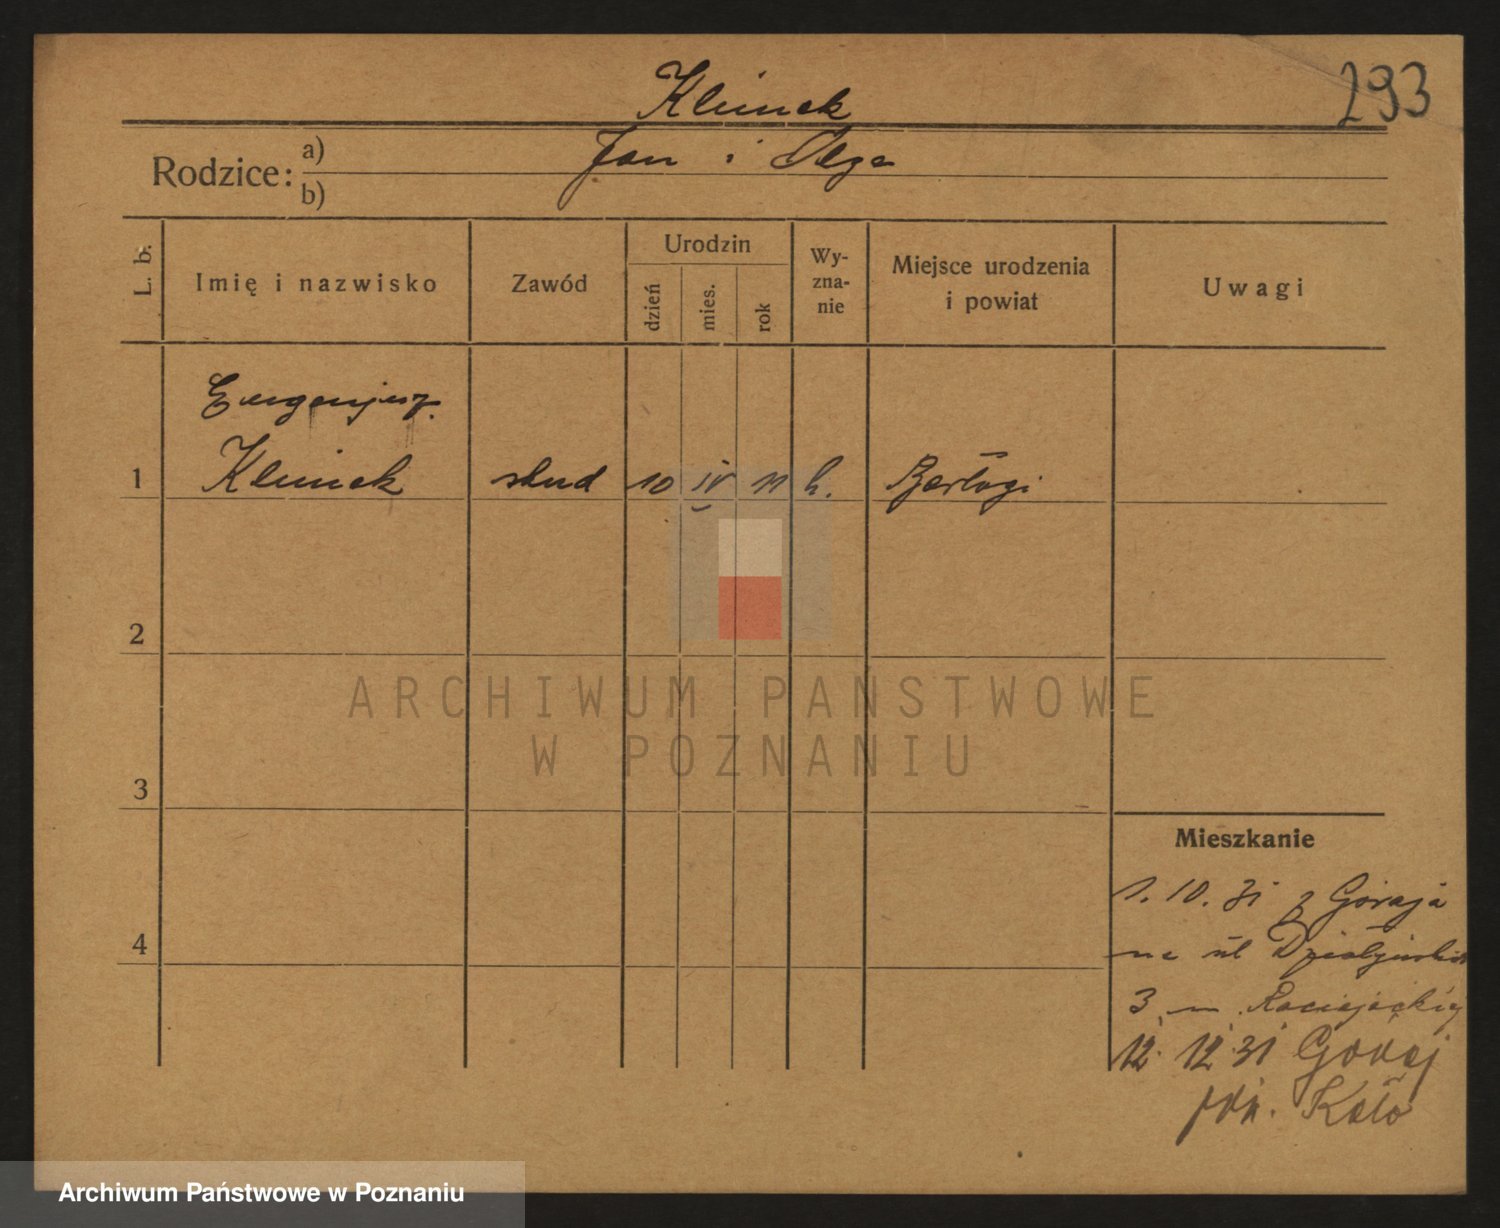 293
Klimek
Rodzice: a) Jan i Olga
b)
L. b.
Imię i nazwisko
Zawód
Urodzin
dzień
mies.
rok
Wy-
zna-
nie
Miejsce urodzenia
i powiat
Uwagi
Eugenjusz
1 Klimek stud 10 IV 11 k. Barłogi
2
ARCHIWUM PAŃSTWOWE
W POZNANIU
3
Mieszkanie
1. 10. 31 z Goraja
4
na ul Działyńskich
3 m
12. 12 31 Goraj
pow. Koło
Archiwum Państwowe w Poznaniu